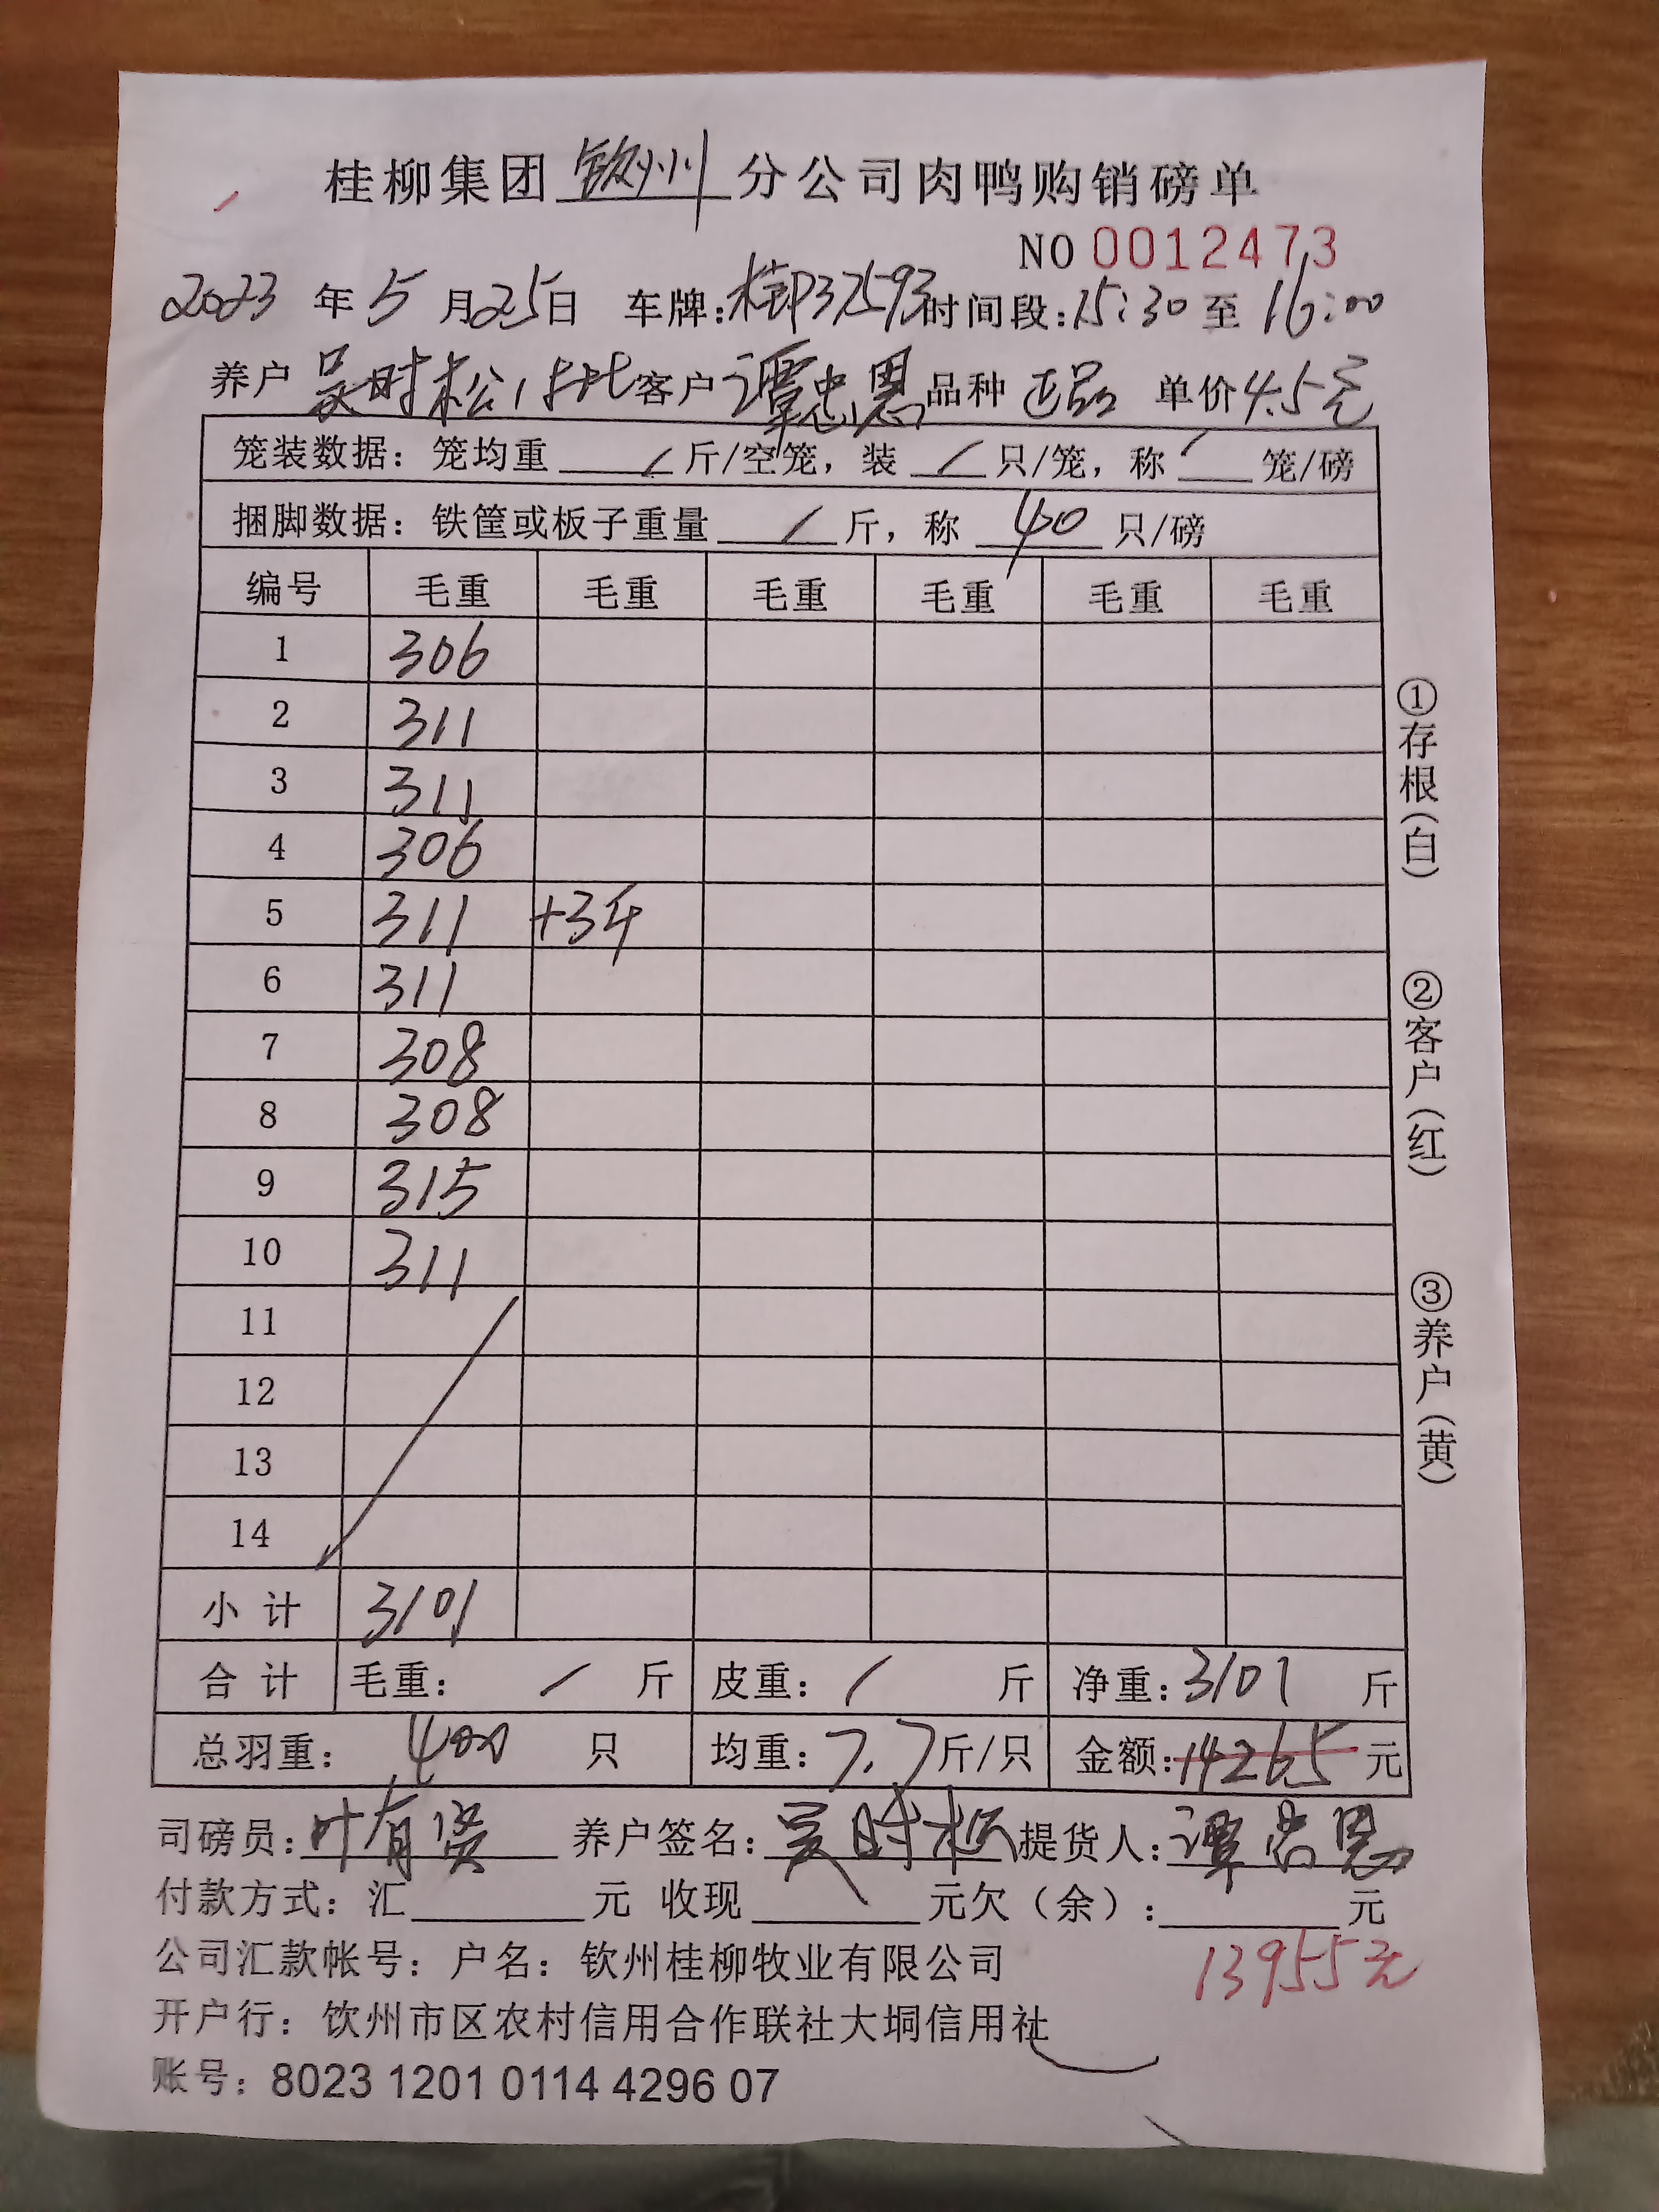 桂柳集团钦州分公司肉鸭购销磅单
NO 0012473
2023年5月25日 车牌:桂P37593时间段:15:30至16:00
养户吴时松1批客户谭忠恩品种正品 单价4.5元
笼装数据：笼均重 / 斤/空笼，装 / 只/笼，称 / 笼/磅
捆脚数据：铁筐或板子重量 / 斤，称 40 只/磅
编号 毛重 毛重 毛重 毛重 毛重 毛重
1 306
2 311
3 311
4 306
5 311 +3斤
6 311
7 308
8 308
9 315
10 311
11
12
13
14
小计 3101
合计 毛重： / 斤 皮重： / 斤 净重：3101 斤
总羽重： 400 只 均重：7.7斤/只 金额:14265元
司磅员:叶有贤 养户签名:吴时松 提货人:谭忠恩
付款方式：汇 元 收现 元欠（余）: 元
13955元
公司汇款帐号：户名：钦州桂柳牧业有限公司
开户行：钦州市区农村信用合作联社大垌信用社
账号：8023 1201 0114 4296 07
①存根（白）
②客户（红）
③养户（黄）